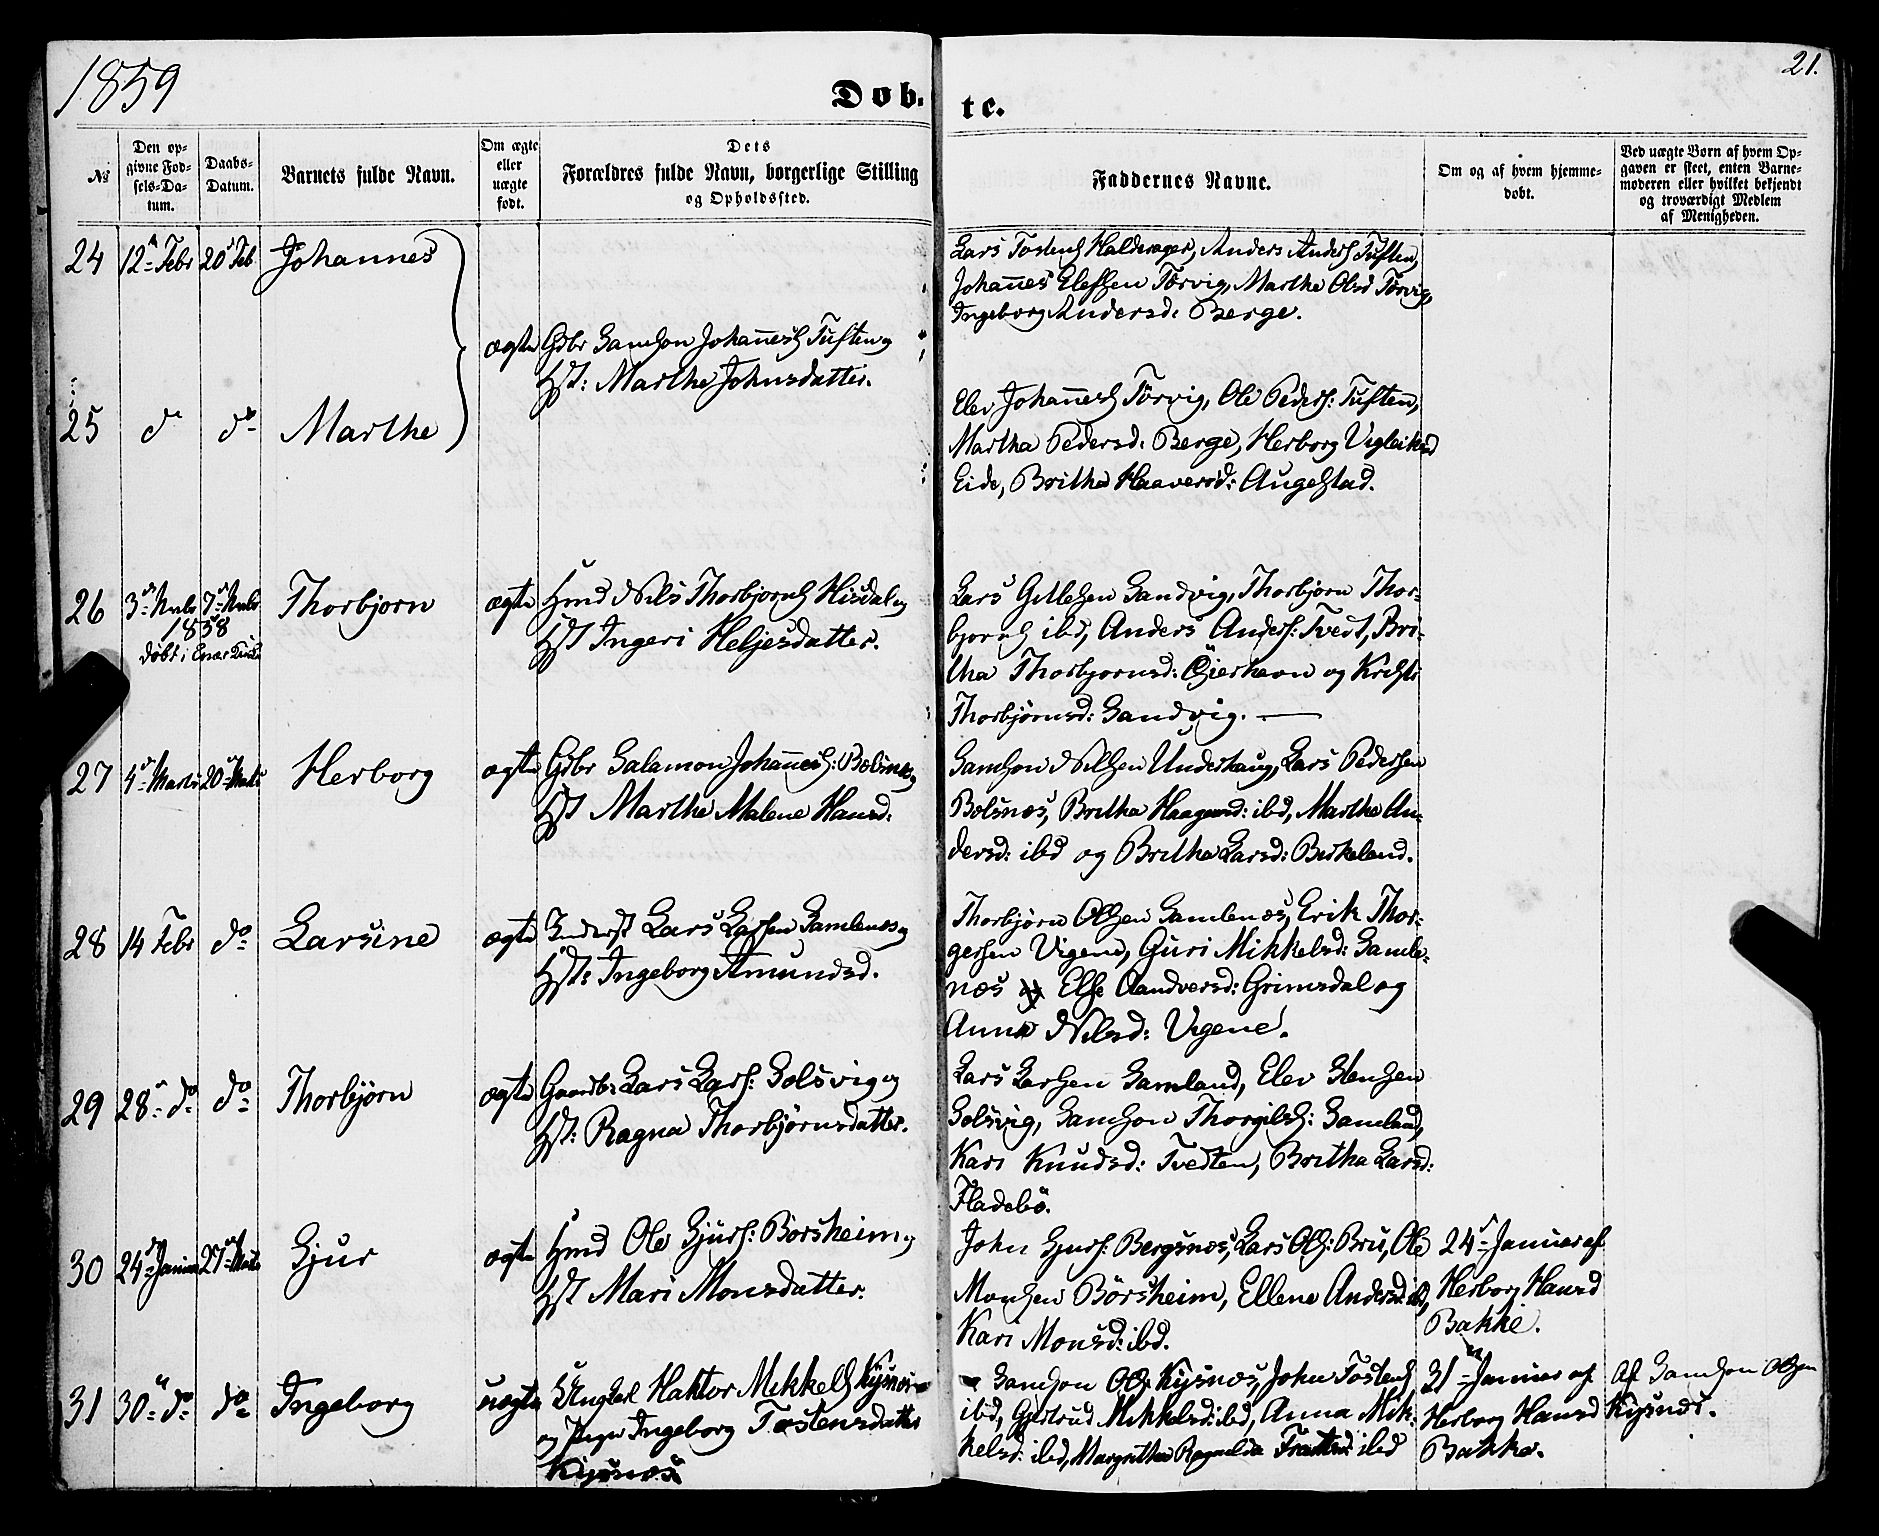 1859
21.
Døb. te.
No
Den opgivne Fødsels-Datum.
Daabs-Datum.
Barnets fulde Navn.
Om ægte eller uægte født.
Dets Forældres fulde Navn, borgerlige Stilling og Opholdssted.
Faddernes Navne.
Om og af hvem hjemmedøbt.
Ved uægte Børn af hvem Opgaven er skeet, enten Barnemoderen eller hvilket bekjendt og troværdigt Medlem af Menigheden.
24 12te Febr 20de Feb Johannes
ægte Gdbr Samson Johannes Tuften og
Hst: Marthe Johnsdatter.
Lars Tostens Halderager, Anders Anders Tuften,
Johannes Elefsen Tørvig, Marthe Olsd Tørvig,
Ingeborg Andersd: Berge.
25 do do Marthe
Elev Johannes Tørvig, Ole Peders: Tuften,
Martha Pedersd: Berge, Herborg Vigleiksd
Eide, Britha Haaversd: Augestad.
26 3de Nvbr 7de Nvbr Thorbjørn
1858
døbt i Enæs Kirke
ægte Hmd Nils Thorbjørns Hisdal og
Hst Ingeri Heljesdatter.
Lars Gitlesen Sandvig, Thorbjørn Thor-
bjørns ibd, Anders Anders: Tvedt, Bri-
tha Thorbjørnsd: Øierhavn og Kristi
Thorbjørnsd: Sandvig.
27 4de Marts 20de Marts Herborg
ægte Gdbr Salamon Johannes: Bolsnæs og
Hst Marthe Malene Hansd:
Samson Nilsen Underhaug, Lars Pedersen
Bolsnæs, Britha Haagensd: ibd, Marthe An-
dersd: ibd og Britha Larsd: Birkeland.
28 14 Febr do Larsine
ægte Inderst Lars Larsen Samlenæs og
Hst: Ingeborg Amundsd.
Thorbjørn Olsen Samlenæs, Erik Thor-
gersen Vigene, Guri Mikkelsd: Samle-
næs Else Aandversd: Grimsdal og
Anna Nilsd: Vigene.
29 28de do do Thorbjørn
ægte Gaardbr Lars Lars: Solsvig og
Hst: Ragna Thorbjørnsdatter.
Lars Larsen Samland, Elev Stensen
Solsvig, Samson Thorgils: Samland,
Kari Knudsd: Tvedten, Britha Larsd:
Fladebö.
30 24de Januar 27de Marts Sjur
ægte Hmd Ole Sjurs: Børsheim og
Hst Mari Monsdatter.
John Sjurs: Bergsnæs, Lars Ols: Bru, Ole
Monsen Børsheim, Ellene Andersd: ibd,
Kari Monsd: ibd.
24de Januar af
Herborg Hansd
Bakke.
31 30te do do Ingeborg
uægte Ungkarl Haktor Mikkels Kysnæs
og Pige Ingeborg Tostensdatter
Kysnæs
Samson Ols Kysnæs, John Tostens
ibd, Gjertrud Mikkelsd: ibd, Anna Mik-
kelsd: ibd, Margritha ibd
31te Januar af
Herborg Hansd
Bakke.
Af Samson Olsen
Kysnæs.